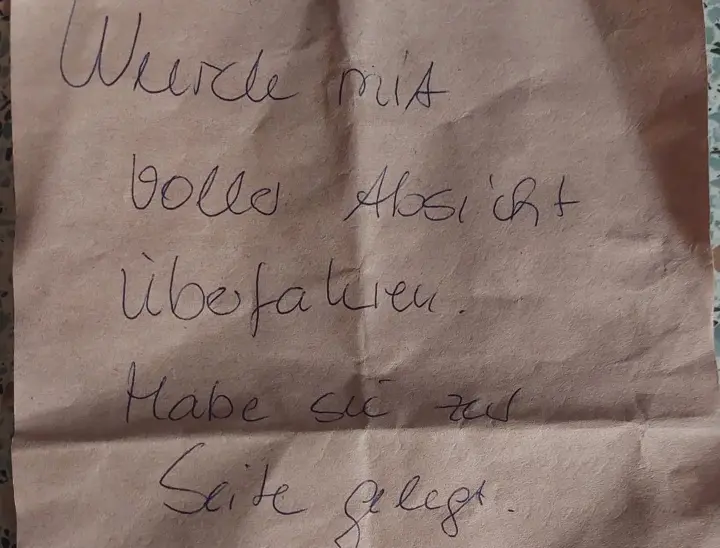 Wurde mit
voller Absicht
Überfahren.
Habe sie zur
Seite gelegt.